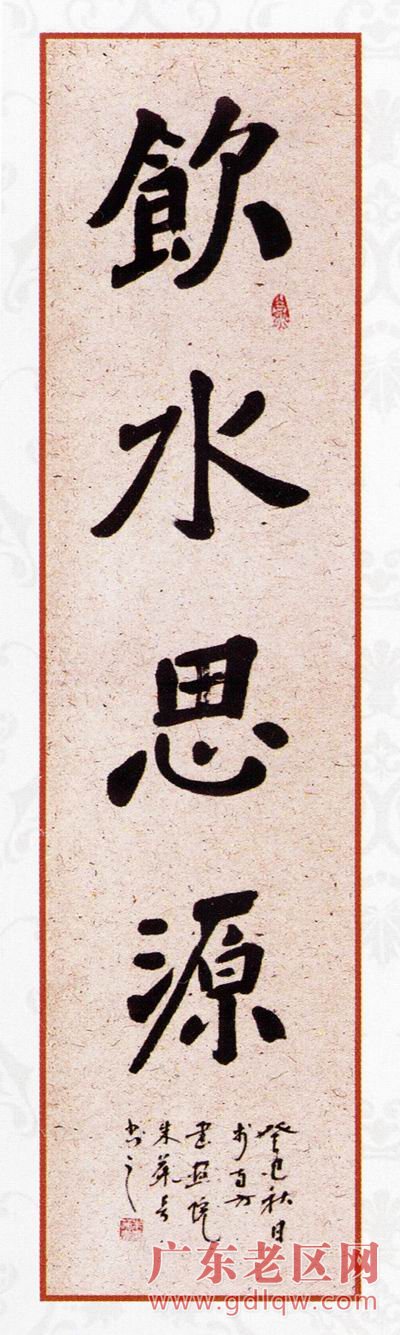 飲水思源
癸巳秋日
於南方
書畫院
朱
書之
广东老区网
www.gdlqw.com